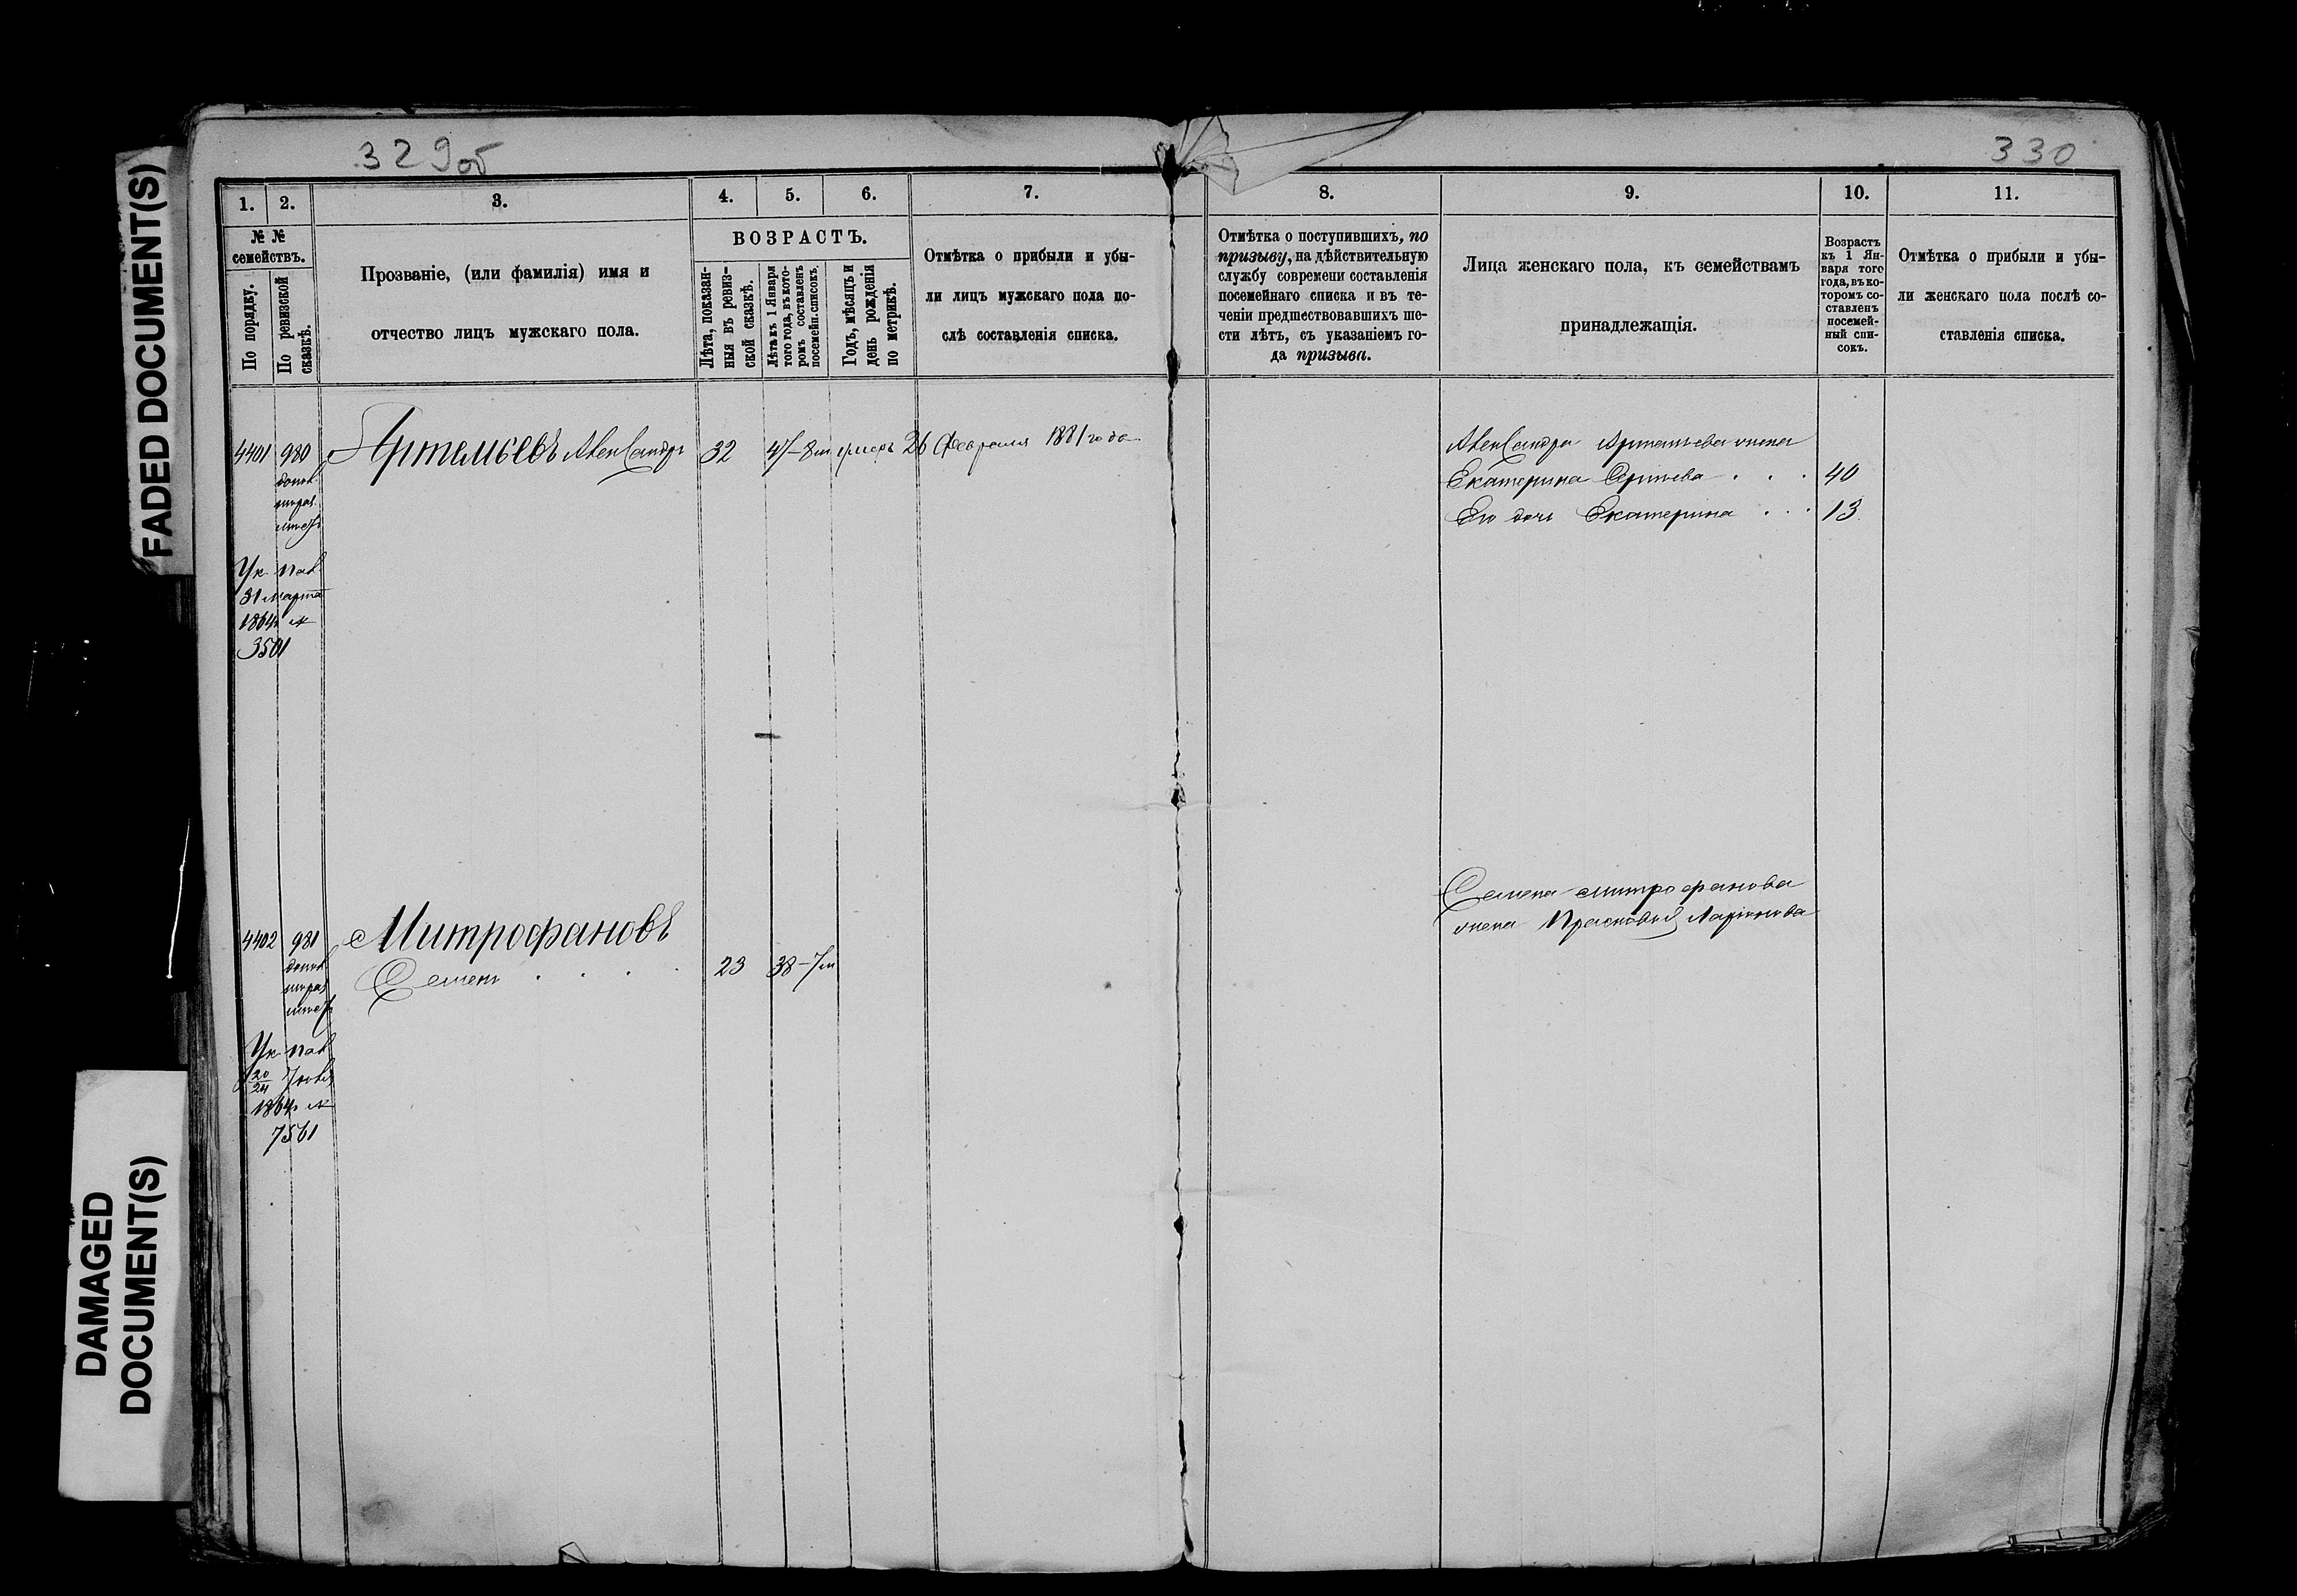 FADED DOCUMENT(S)
DAMAGED
DOCUMENT(S)
329об
330
1.
2.
3.
4.
5.
6.
7.
№ №
семействъ.
По порядку.
По ревизской
сказкѣ.
Прозваніе, (или фамилія) имя и
отчество лицъ мужскаго пола.
ВОЗРАСТЪ.
Лѣта, показан-
ныя въ ревиз-
ской сказкѣ.
Лѣта къ 1 Января
того года, въ кото-
ромъ составленъ
посемейн. списокъ.
Годъ, мѣсяцъ и
день рожденія
по метрикѣ.
Отмѣтка о прибыли и убы-
ли лицъ мужскаго пола по-
слѣ составленія списка.
8.
9.
10.
11.
Отмѣтка о поступившихъ, по
призыву, на дѣйствительную
службу современи составленія
посемейнаго списка и въ те-
ченіи предшествовавшихъ ше-
сти лѣтъ, съ указаніемъ го-
да призыва.
Лица женскаго пола, къ семействамъ
принадлежащія.
Возрастъ
къ 1 Ян-
варя того
года, въ ко-
торомъ со-
ставленъ
посемей-
ный спи-
сокъ.
Отмѣтка о прибыли и убы-
ли женскаго пола послѣ со-
ставленія списка.
4401 980 Артемьевъ Александръ 32 47-8м умеръ 26 Февраля 1881 года
Ук. пал
31 марта
1864г №
3501
Александра Артемьева жена
Екатерина 40
Его дочь Екатерина 13
4402 981 Митрофановъ
Семенъ 23 38-7м
Ук. пал
20/24
1864г №
7561
Семена Митрофанова
жена Прасковья Ларіонова